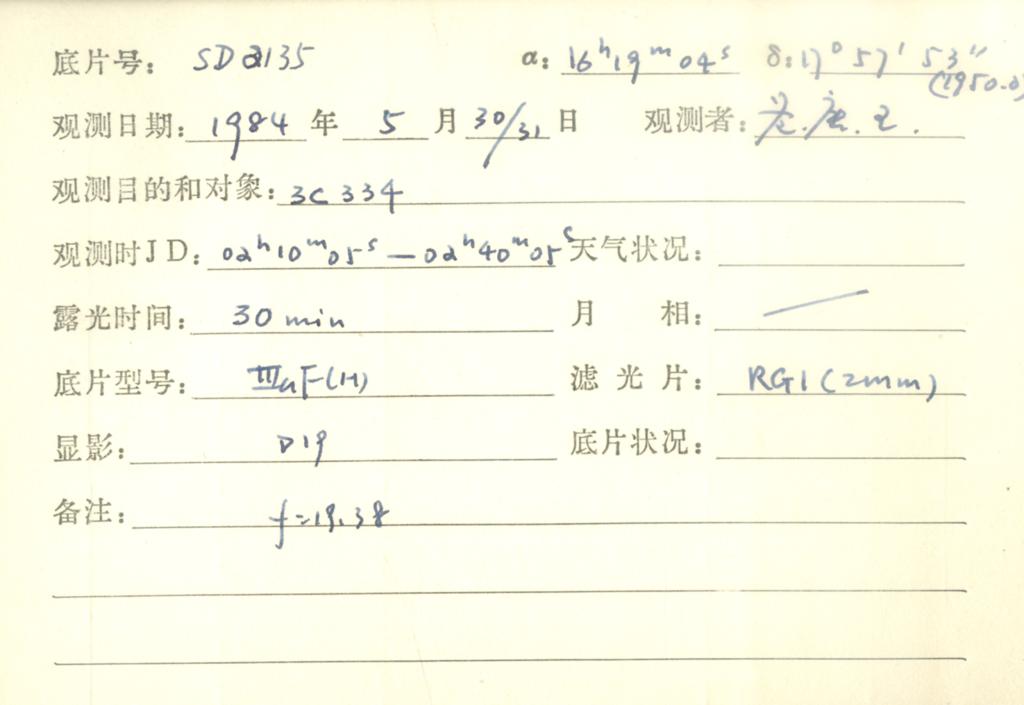 底片号: SD2135 α: 16ʰ19ᵐ04ˢ δ: 17° 57′ 53″ (1950.0)
观测日期: 1984 年 5 月 30/31 日 观测者: . 唐. 王.
观测目的和对象: 3C 334
观测时JD: 02ʰ10ᵐ05ˢ — 02ʰ40ᵐ05ˢ 天气状况:
露光时间: 30 min 月 相: /
底片型号: IIIaF(H) 滤光片: RG1 (2mm)
显影: D19 底片状况:
备注: f=19.38